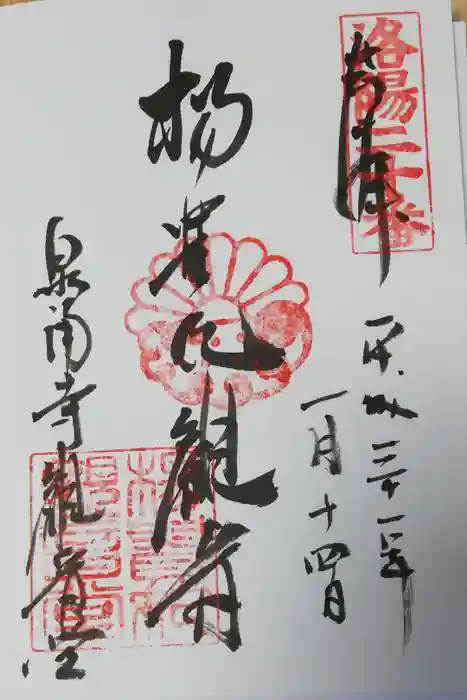 奉拝
洛陽二十番
平成三十一年
一月十四日
楊貴妃観音
泉涌寺観音堂